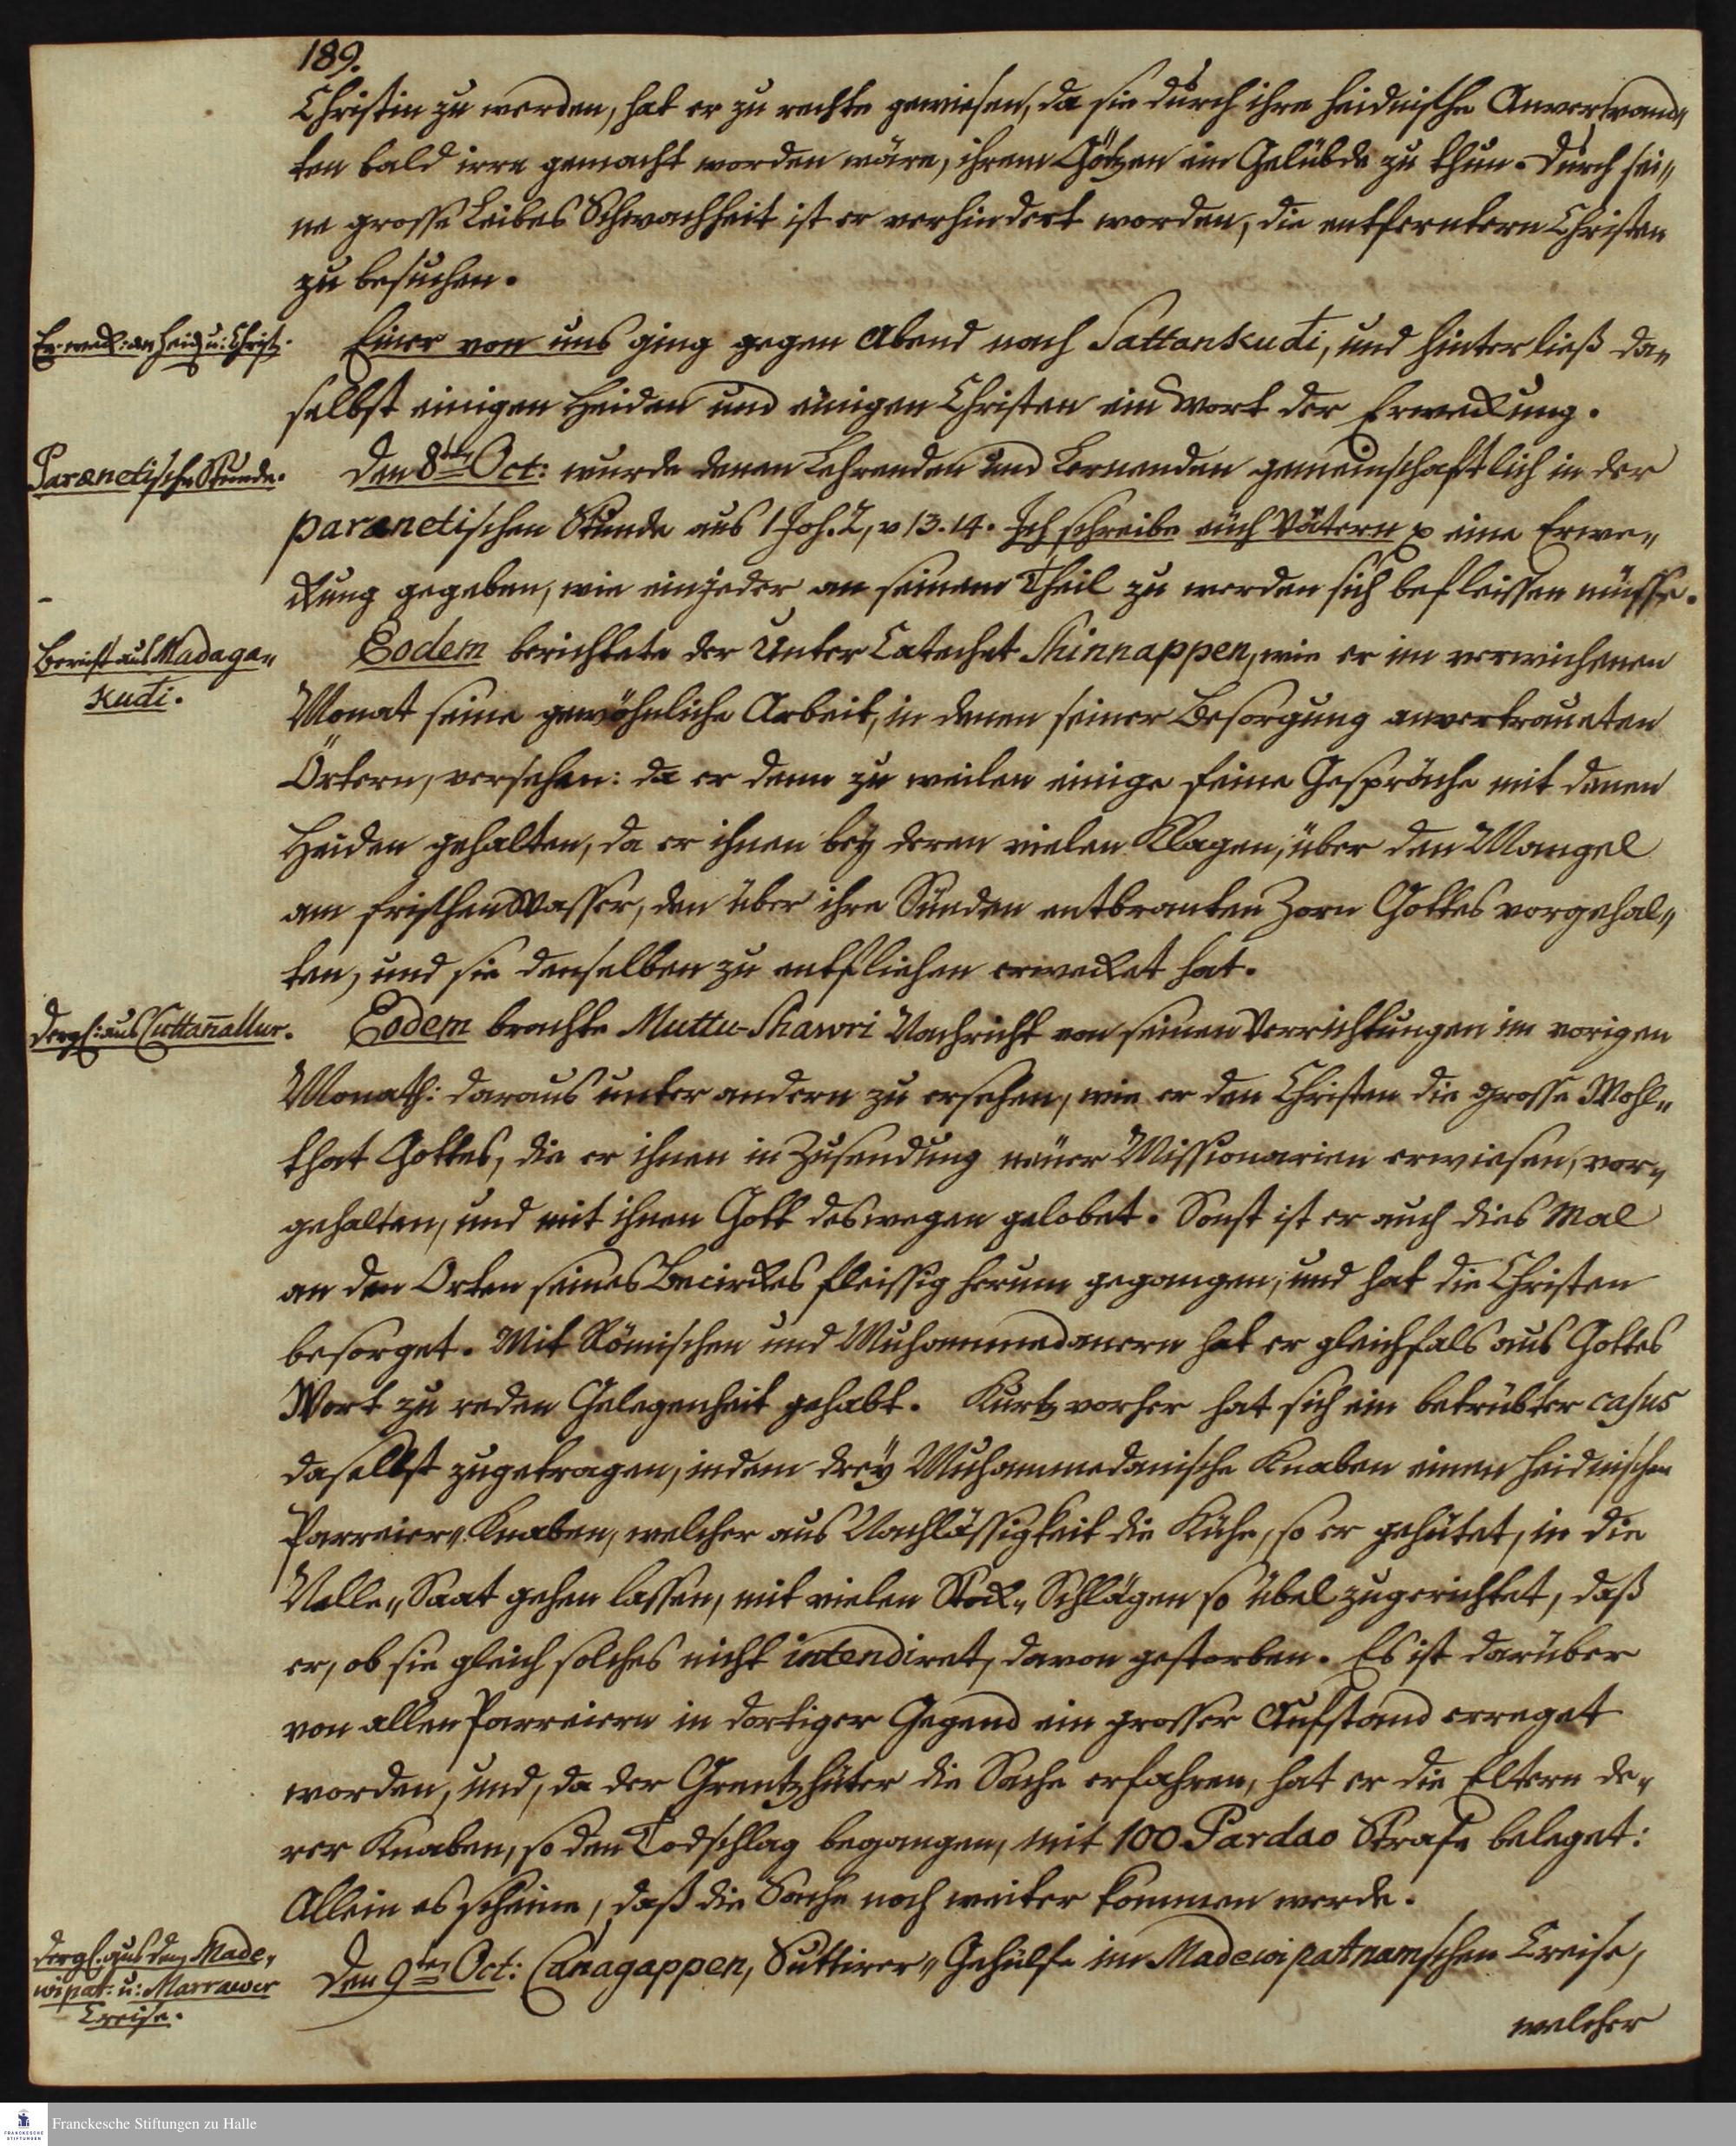 189.
Christin zu werden, hat er zu rechte gewiesen, da sie durch ihre heidnische Anverwand„
ten bald irre gemacht worden wäre, ihrem Götzen ein Gelübde zu thun. Durch sei„
ne grosse Leibes Schwachheit ist er verhindert worden, die entferntern Christen
zu besuchen.
Erweck: an Heid: u: Christ.
Einer von uns ging gegen Abend nach Sattankudi, und hinterließ da„
selbst einigen Heiden und einigen Christen ein Wort der Erweckung.
Parænetische Stunde.
Den 8ten Oct: wurde denen Lehrenden und Lernenden gemeinschaftlich in der
parænetischen Stunde aus 1 Joh. 2, v 13. 14. Ich schreibe euch Vätern eine Erwe„
ckung gegeben, wie ein jeder an seinem Theil zu werden sich befleissen müsse.
Bericht aus Madaga„
kudi.
Eodem berichtete der Unter Catechet Shinnappen, wie er im verwichenen
Monat seine gewöhnliche Arbeit, in denen seiner Besorgung anvertraueten
Örtern, versehen: da er denn zu weilen einige feine Gespräche mit denen
Heiden gehalten, da er ihnen bey deren vielen Klagen, über den Mangel
am frischen Wasser, den über ihre Sünden entbranten Zorn Gottes vorgehal„
ten, und sie denselben zu entfliehen erwecket hat.
Dergl: aus Cuttanallur.
Eodem brachte Muttu-Shawri Nachricht von seinen Verrichtungen im vorigen
Monath: daraus unter andern zu ersehen, wie er den Christen die grosse Wohl„
that Gottes, die er ihnen in Zusendung neuer Missionarien erwiesen, vor„
gehalten, und mit ihnen Gott deswegen gelobet. Sonst ist er auch dies Mal
an den Orten seines Becirckes fleissig herum gegangen, und hat die Christen
besorget. Mit Römischen und Muhammedanern hat er gleichfals aus Gottes
Wort zu reden Gelegenheit gehabt. Kurtz vorher hat sich ein betrübter casus
daselbst zugetragen, indem drey Muhammedanische Knaben einen heidnischen
Parreier„Knaben, welcher aus Nachlässigkeit die Kühe, so er gehütet, in die
Nelle„Saat gehen lassen, mit vielen Stock„Schlägen so übel zugerichtet, daß
er, ob sie gleich solches nicht intendiret, davon gestorben. Es ist darüber
von allen Parreiern in dortiger Gegend ein grosser Aufstand erreget
worden, und, da der Grentzhüter die Sache erfahren, hat er die Eltern de„
rer Knaben, so den Todschlag begangen, mit 100 Pardao Strafe beleget:
Allein es scheine, daß die Sache noch weiter kommen werde.
Dergl. aus dem Made„
wipat: u: Marrawer
Creise.
Den 9ten Oct: Canagappen, Suttirer„Gehülfe im Madewipatnamschen Creise,
welcher
Franckesche Stiftungen zu Halle
FRANCKESCHE
STIFTUNGEN